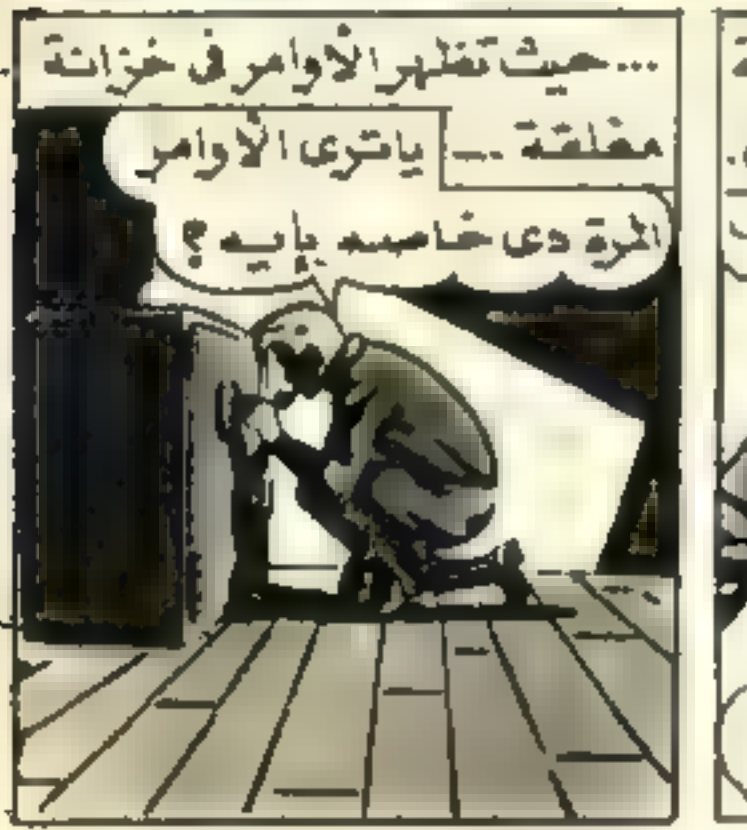 ...حيث تظهر الأوامر فى خزانة
مغلقة ...
ياترى الأوامر
المرة دى خاصه بإيه ؟